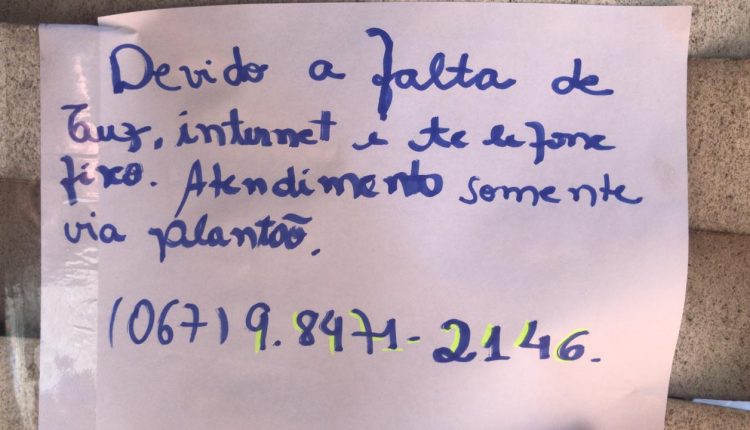 Devido a falta de
luz, internet e telefone
fixo. Atendimento somente
via plantão.
(067) 9.8471-2146.